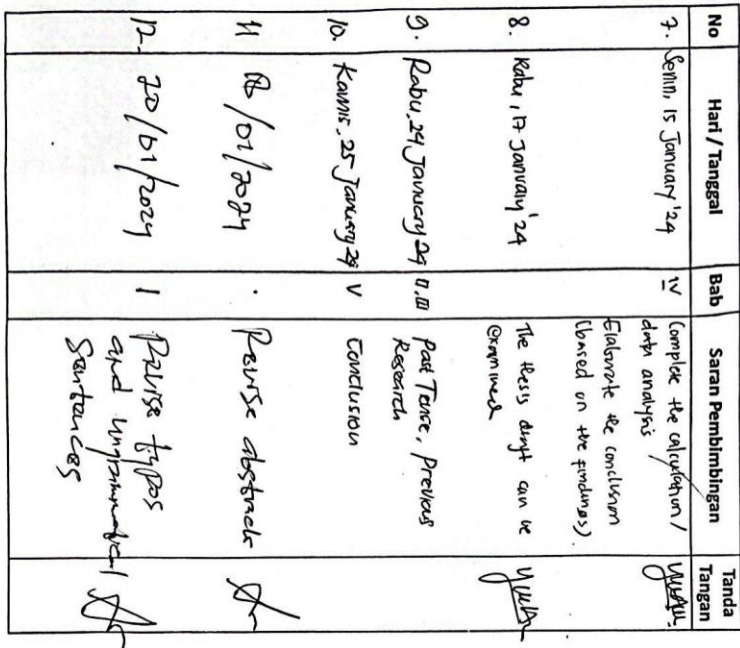 No Hari / Tanggal Bab Saran Pembimbingan Tanda Tangan
7. Senin, 15 January '24 IV Complete the calculation /
data analysis
Elaborate the conclusion
(based on the findings)
8. Rabu, 17 January '24 The thesis draft can be
examined
9. Rabu, 24 January 24 II. III Past Tense, Previous
Research
10. Kamis, 25 January 24 V Conclusion
11 /01/2024 . Revise abstract
12. /01/2024 I Revise typos
and ungrammatical
Sentences